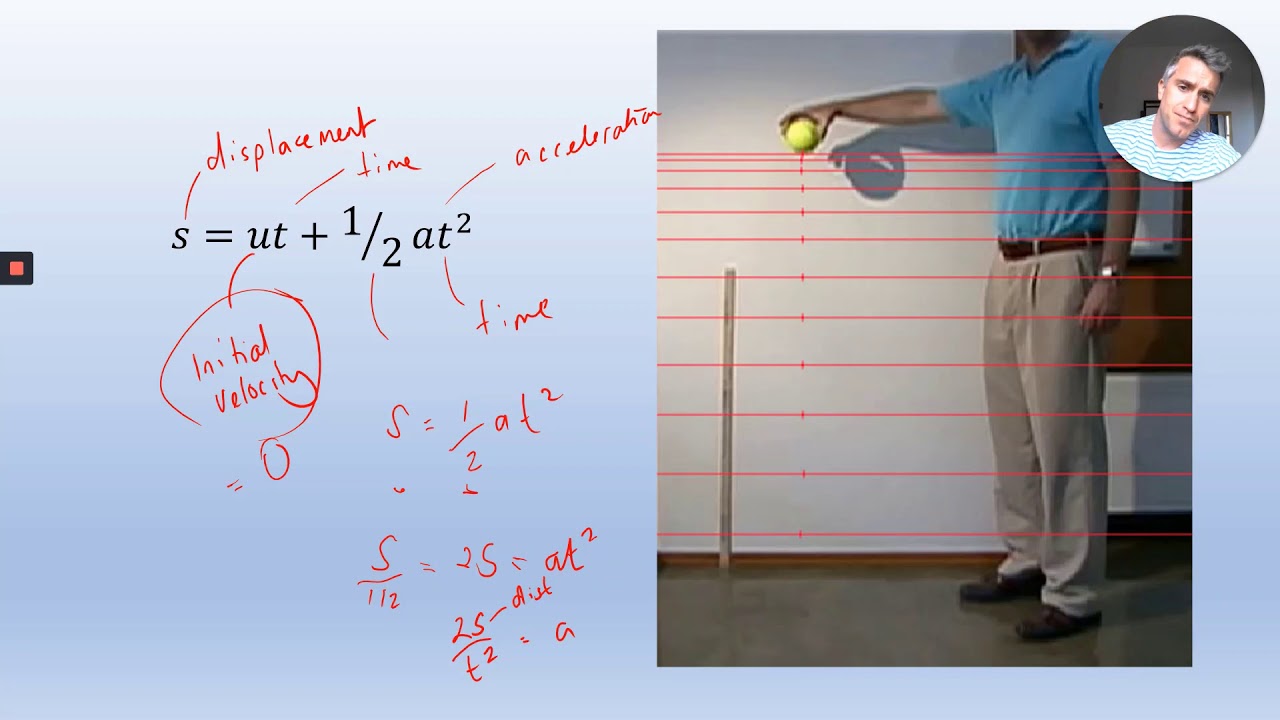 displacement
time
acceleration
s = ut + 1/2 at²
time
Initial
velocity
= 0
S = 1/2 at²
S/1/2 = 2S = at²
dist
2S/t² = a